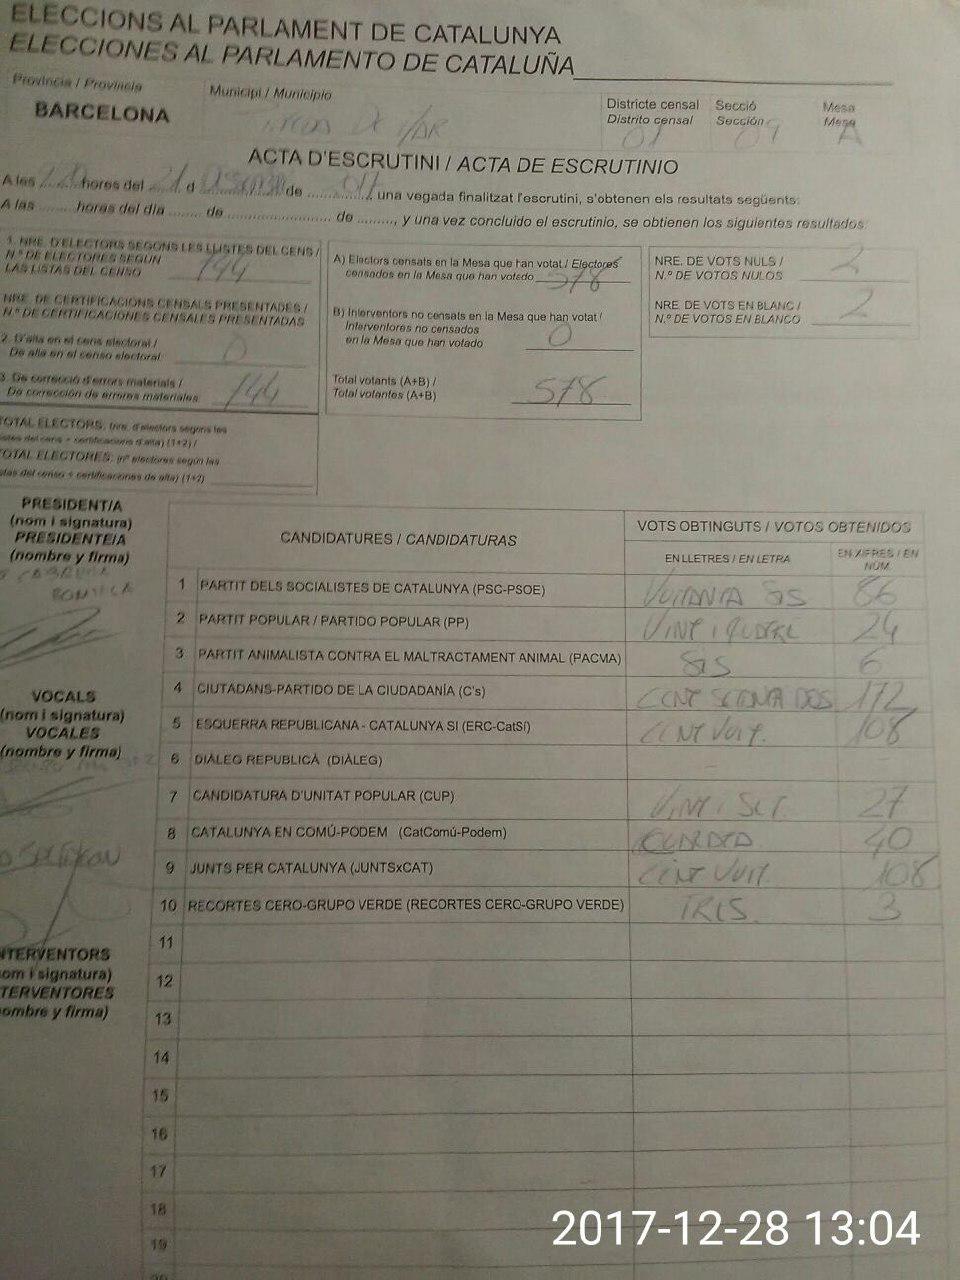 ELECCIONS AL PARLAMENT DE CATALUNYA
ELECCIONES AL PARLAMENTO DE CATALUÑA
Provincia / Provincia
BARCELONA
Municipi / Municipio
DE MAR
Districte censal
Distrito censal
01
Secció
Sección
09
Mesa
Mesa
A
ACTA D'ESCRUTINI / ACTA DE ESCRUTINIO
A les ........ hores del 21 d ........ de ........, una vegada finalitzat l'escrutini, s'obtenen els resultats següents:
A las ........ horas del día ........ de ........ de ........, y una vez concluido el escrutinio, se obtienen los siguientes resultados:
1. NRE. D'ELECTORS SEGONS LES LLISTES DEL CENS /
N.º DE ELECTORES SEGÚN
LAS LISTAS DEL CENSO
744
NRE. DE CERTIFICACIONS CENSALS PRESENTADES /
N.º DE CERTIFICACIONES CENSALES PRESENTADAS
2. D'alta en el cens electoral /
De alta en el censo electoral
0
3. De correcció d'errors materials /
De corrección de errores materiales
744
TOTAL ELECTORS: (nre. d'electors segons les
llistes del cens + certificacions d'alta) (1+2) /
TOTAL ELECTORES: (nº electores según las
listas del censo + certificaciones de alta) (1+2)
A) Electors censats en la Mesa que han votat / Electores
censados en la Mesa que han votado
578
B) Interventors no censats en la Mesa que han votat /
Interventores no censados
en la Mesa que han votado
0
Total votants (A+B) /
Total votantes (A+B)
578
NRE. DE VOTS NULS /
N.º DE VOTOS NULOS
2
NRE. DE VOTS EN BLANC /
N.º DE VOTOS EN BLANCO
2
PRESIDENT/A
(nom i signatura)
PRESIDENTE/A
(nombre y firma)
VOCALS
(nom i signatura)
VOCALES
(nombre y firma)
INTERVENTORS
(nom i signatura)
INTERVENTORES
(nombre y firma)
CANDIDATURES / CANDIDATURAS
VOTS OBTINGUTS / VOTOS OBTENIDOS
EN LLETRES / EN LETRA
EN XIFRES / EN NÚM.
1 PARTIT DELS SOCIALISTES DE CATALUNYA (PSC-PSOE) VUITANTA SIS 86
2 PARTIT POPULAR / PARTIDO POPULAR (PP) VINT I QUATRE 24
3 PARTIT ANIMALISTA CONTRA EL MALTRACTAMENT ANIMAL (PACMA) SIS 6
4 CIUTADANS-PARTIDO DE LA CIUDADANÍA (C's) CENT SETENTA DOS 172
5 ESQUERRA REPUBLICANA - CATALUNYA SI (ERC-CatSí) CENT VUIT. 108
6 DIÀLEG REPUBLICÀ (DIÀLEG) - -
7 CANDIDATURA D'UNITAT POPULAR (CUP) VINT I SET. 27
8 CATALUNYA EN COMÚ-PODEM (CatComú-Podem) 40
9 JUNTS PER CATALUNYA (JUNTSxCAT) CENT VUIT. 108
10 RECORTES CERO-GRUPO VERDE (RECORTES CERO-GRUPO VERDE) TRES. 3
11
12
13
14
15
16
17
18
19
20
2017-12-28 13:04